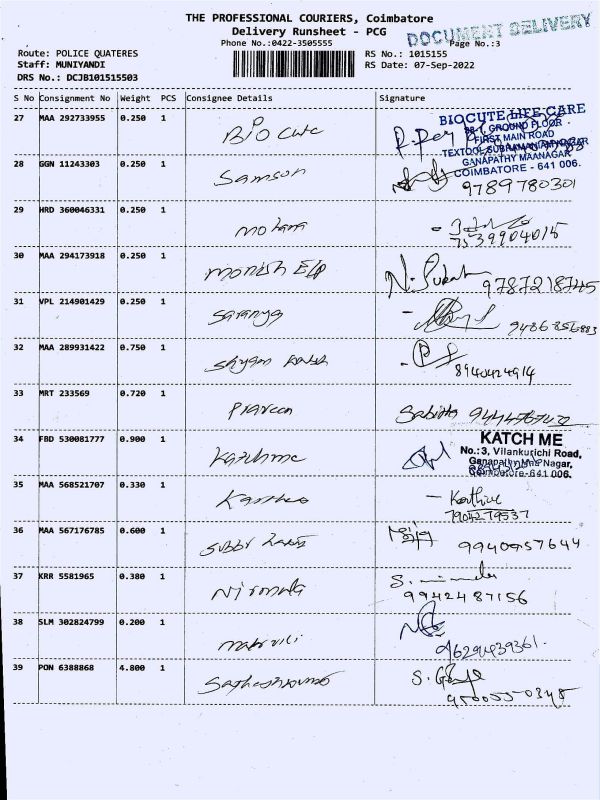 THE PROFESSIONAL COURIERS, Coimbatore
Delivery Runsheet - PCG
DOCUMENT DELIVERY
Phone No.:0422-3505555
Page No.:3
Route: POLICE QUATERES
RS No.: 1015155
Staff: MUNIYANDI
RS Date: 07-Sep-2022
DRS No.: DCJB101515503
S No Consignment No Weight PCS Consignee Details Signature
27 MAA 292733955 0.250 1 BIO CUTE
BIOCUTE LIFE CARE
GROUND FLOOR
FIRST MAIN ROAD
GANAPATHY MAANAGAR
COIMBATORE - 641 006.
28 GGN 11243303 0.250 1 Samson
9789780301
29 HRD 360046331 0.250 1 mohana
7539904015
30 MAA 294173918 0.250 1 monish
9787218745
31 VPL 214901429 0.250 1 Saranya
9486856883
32 MAA 289931422 0.750 1 Shyam
8940424914
33 MRT 233569 0.720 1 Praveen
Sabitha
34 FBD 530081777 0.900 1 Katchme
KATCH ME
No.:3, Vilankurichi Road,
Ganapathy Maa Nagar,
Coimbatore-641 006.
35 MAA 568521707 0.330 1
7904279537
36 MAA 567176785 0.600 1
9940957644
37 KRR 5581965 0.380 1 Nirmala
9942487156
38 SLM 302824799 0.200 1
9629439361.
39 PON 6388868 4.800 1